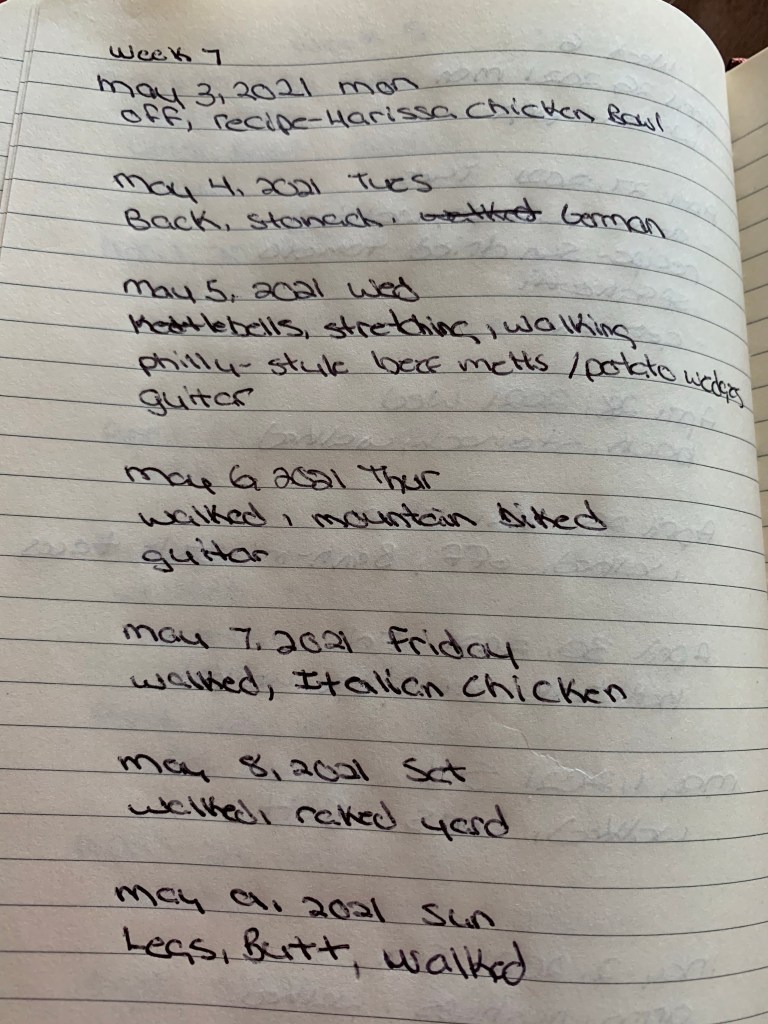 Week 7
May 3, 2021 mon
off, recipe-Harissa Chicken Bowl
May 4, 2021 Tues
Back, stomach, walked German
May 5, 2021 Wed
Kettlebells, stretching, walking
philly-style beef melts / potato wedges
guitar
May 6, 2021 Thur
walked, mountain biked
guitar
May 7, 2021 Friday
walked, Italian Chicken
May 8, 2021 Sat
walked, raked yard
May 9, 2021 Sun
Legs, Butt, walked